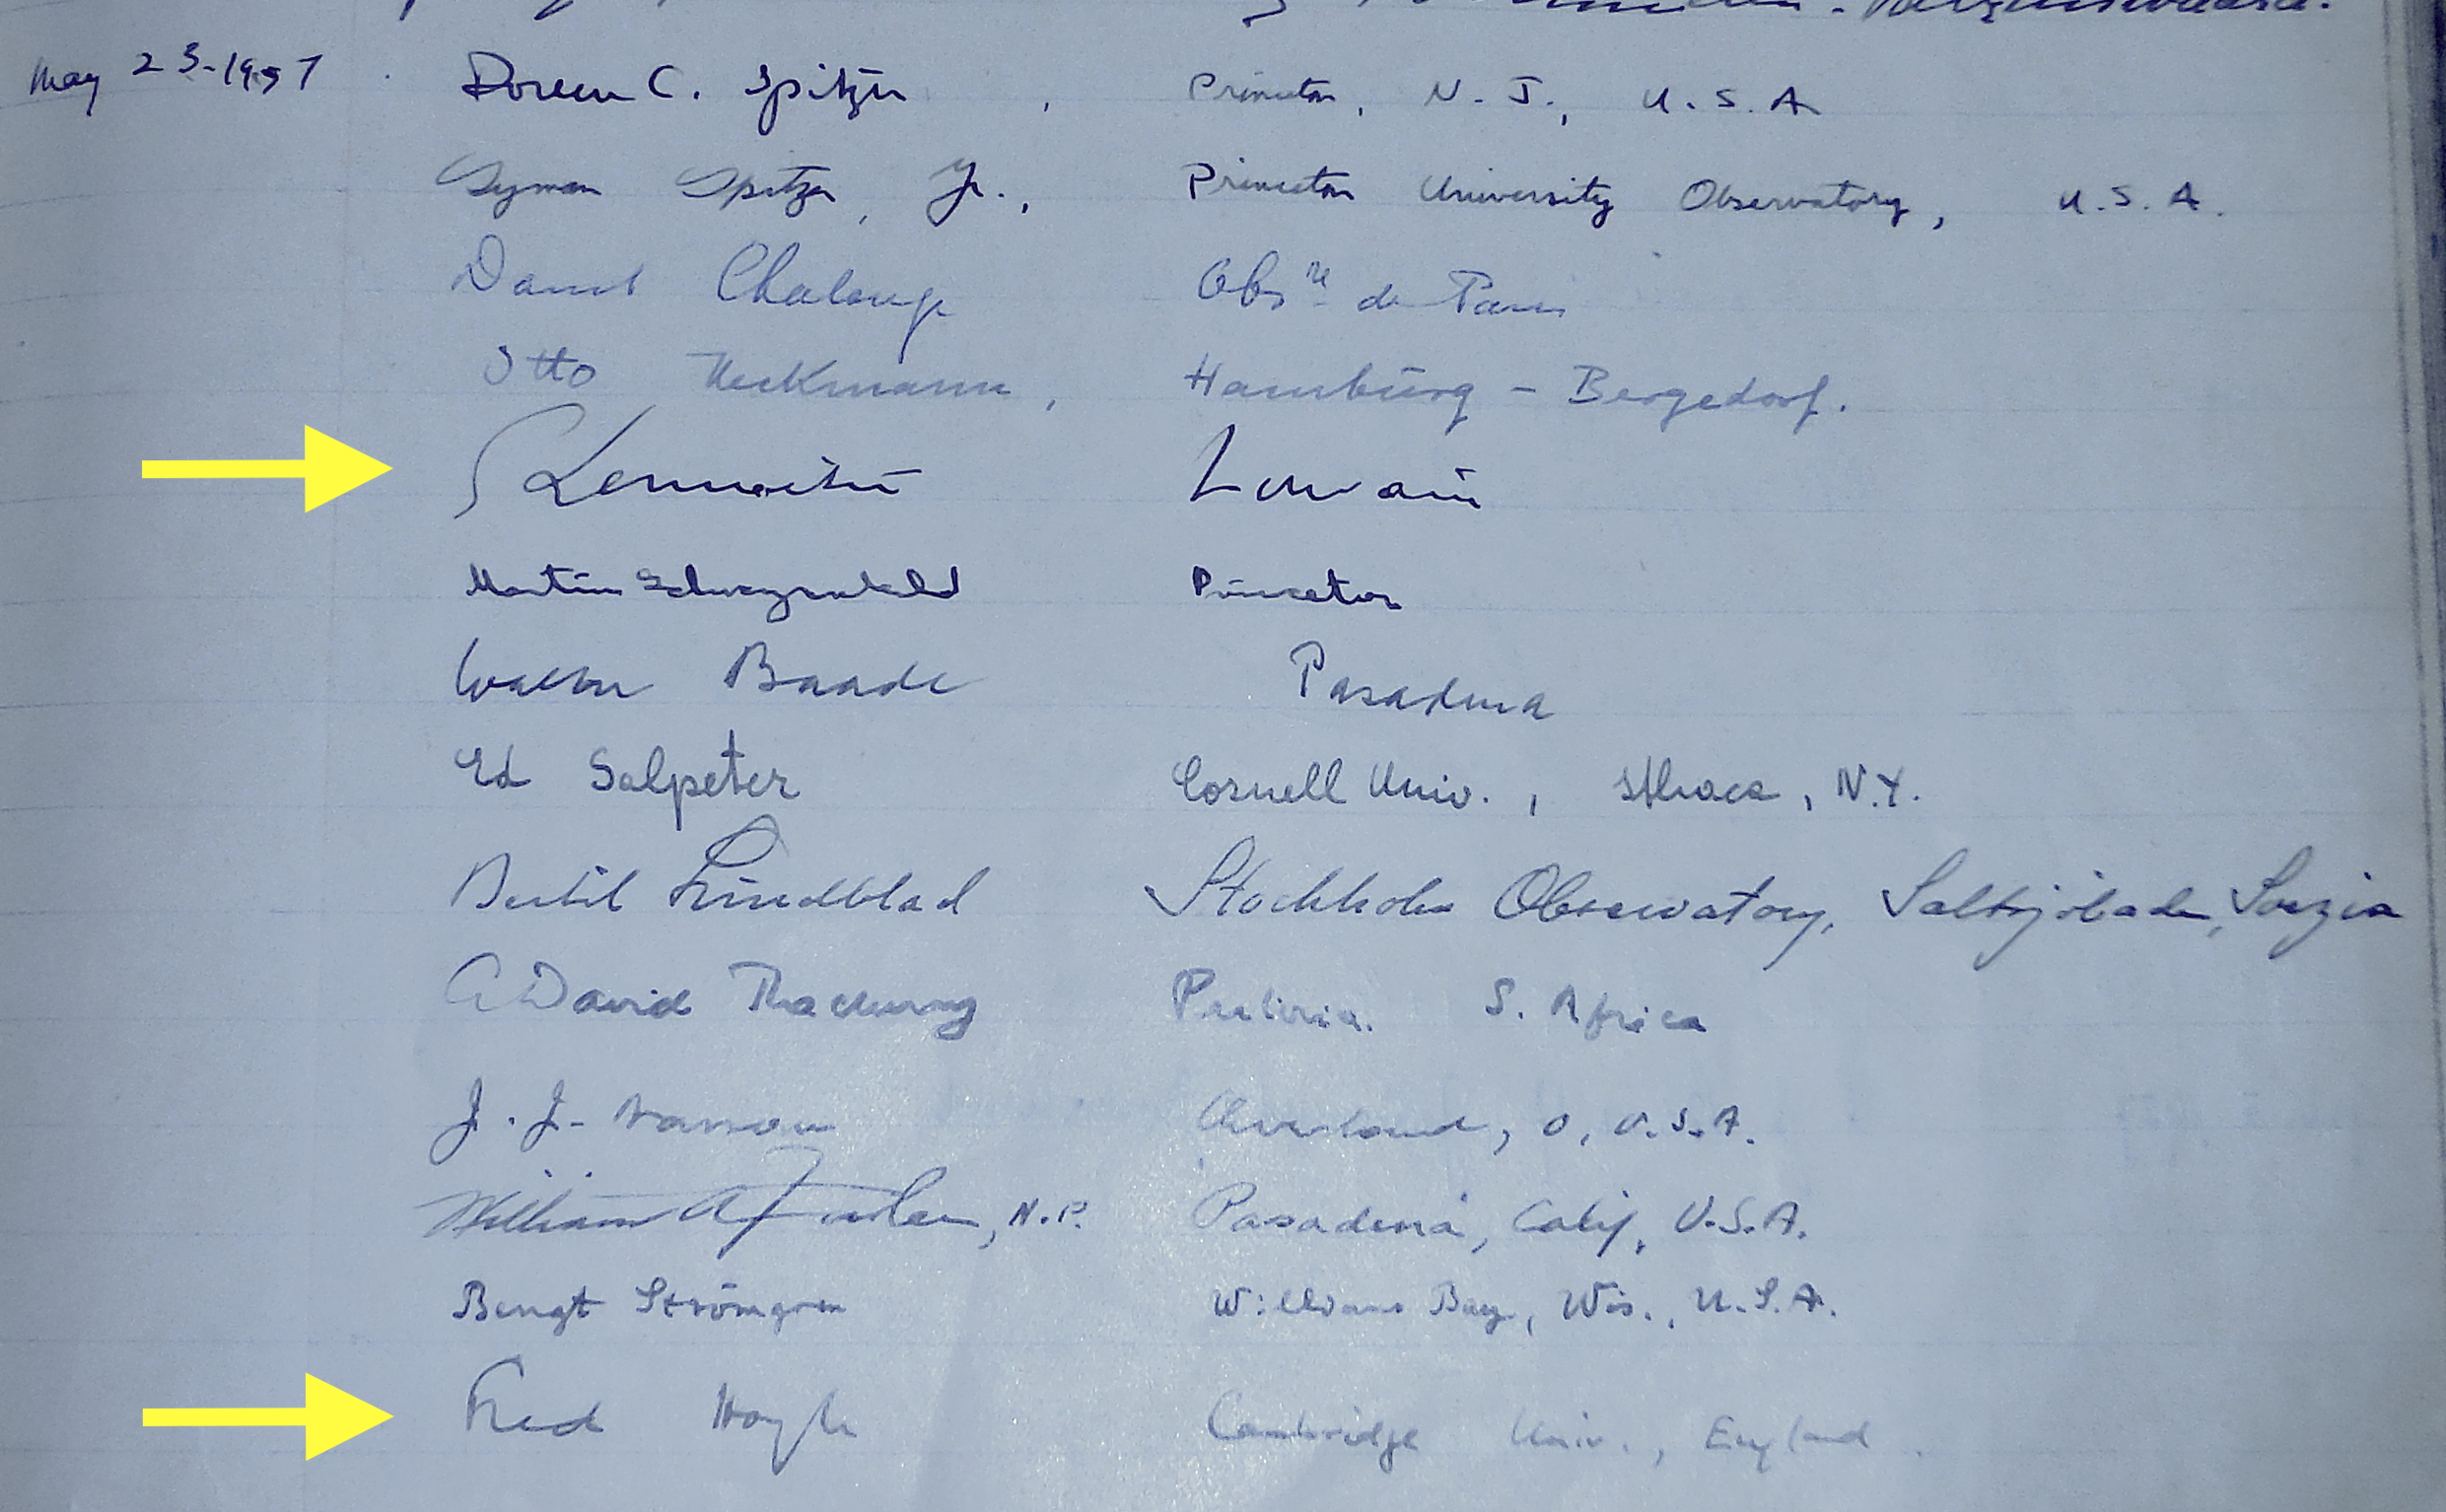 May 23-1957 Doreen C. Spitzer, Princeton, N. J., U. S. A.
Lyman Spitzer, Jr., Princeton University Observatory, U. S. A.
Daniel Chalonge Obs re de Paris
Otto Heckmann, Hamburg - Bergedorf.
G Lemaitre Louvain
Martin Schwarzschild Princeton
Walter Baade Pasadena
Ed Salpeter Cornell Univ., Ithaca, N.Y.
Bertil Lindblad Stockholm Observatory, Saltsjöbaden, Svezia
A David Thackeray Pretoria. S. Africa
J. J. Nassau Cleveland, O, U.S.A.
William A Fowler, N.P. Pasadena, Calif, U.S.A.
Bengt Strömgren Williams Bay, Wis., U.S.A.
Fred Hoyle Cambridge Univ., England.